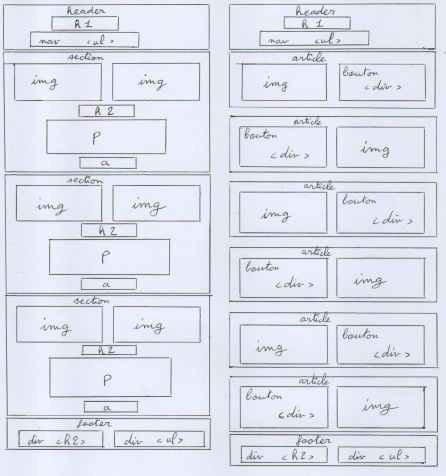 header
h1
nav <ul>
section
img img
h2
p
a
section
img img
h2
p
a
section
img img
h2
p
a
footer
div <h2> div <ul>
header
h1
nav <ul>
article
img bouton
<div>
article
bouton
<div> img
article
img bouton
<div>
article
bouton
<div> img
article
img bouton
<div>
article
bouton
<div> img
footer
div <h2> div <ul>